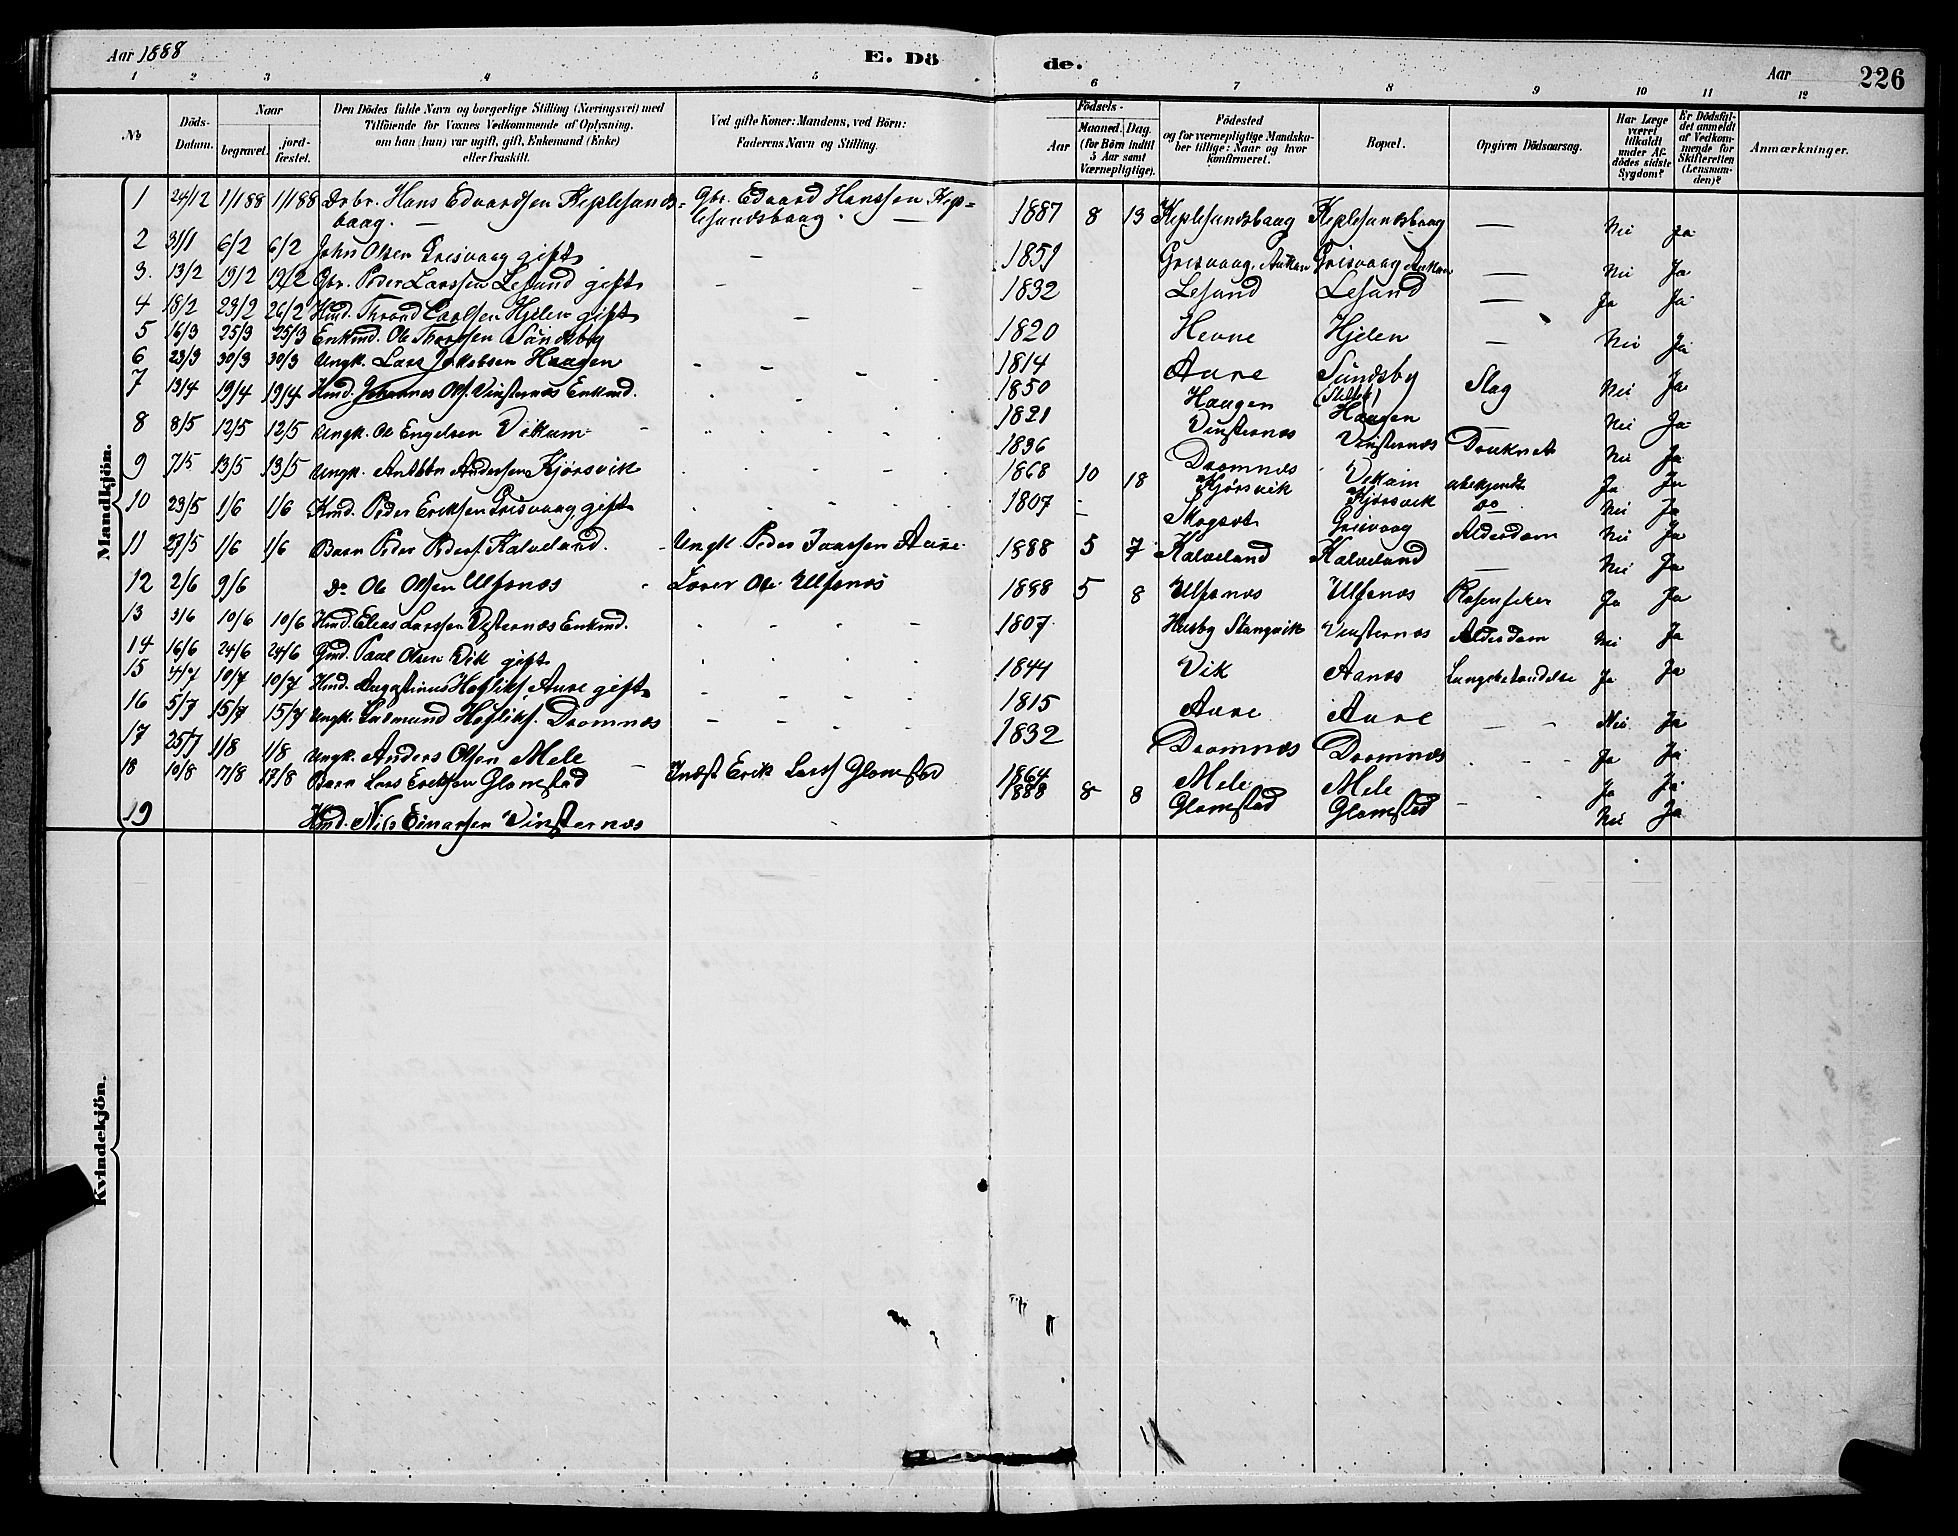 Aar 1888 E. Dö de. Aar 226
1 2 3 4 5 6 7 8 9 10 11 12
№ Döds-Datum. Naar begravet. jord-fæstet. Den Dödes fulde Navn og borgerlige Stilling (Næringsvei) med Tilföiende for Voxnes Vedkommende af Oplysning, om han (hun) var ugift, gift, Enkemand (Enke) eller fraskilt. Ved gifte Koner: Mandens, ved Börn: Faderens Navn og Stilling. Födsels- Aar Maaned. Dag. (for Börn indtil 5 Aar samt Værnepligtige). Födested og for værnepligtige Mandskaber tillige: Naar og hvor konfirmeret. Bopæl. Opgiven Dödsaarsag. Har Læge været tilkaldt under Afdödes sidste Sygdom? Er Dödsfaldet anmeldt af Vedkommende for Skifteretten (Lensmanden)? Anmærkninger.
Mandkjön.
1 24/12 1/1 88 1/1 88 Drbr. Hans Edvardsen Keplesunds- Gbr. Edvard Hanssen Kep-
baag. — lesundsbaag. — 1887 8 13 Keplesundsbaag Keplesundsbaag — Nei Ja
2 31/1 6/2 6/2 John Olsen Grisvaag gift — 1851 Grisvaag, Aukan Grisvaag Aukan — Nei Ja
3. 13/2 19/2 19/2 Gbr. Peder Larssen Lesund gift - - 1832 Lesund Lesund — Ja Ja
4 18/2 23/2 26/2 Hmd. Thrond Carlsen Hjelen gift - 1820 Hevne Hjelen — Nei Ja
5 16/3 25/3 25/3 Enkmd. Ole Sundsby 1814 Aure Sundsby Slag Nei Ja
6 23/3 30/3 30/3 Ungk. Lars Jakobsen Haagen - - - - 1850 Haagen Haagen Nei Ja
7 13/4 19/4 19/4 Hmd. Johannes Ols. Vinsternes Enkmd. 1821 Vinsternæs Vinsternæs Druknet Nei Ja
8 8/5 12/5 12/5 Ungk. Ole Engelsen Vikum - 1836 Dromnæs Vikum ubekjendt Ja Ja
9 7/5 13/5 13/5 Ungk. Andersen Kjørsvik 1868 10 18 Kjørsvik Kjørsvik do Nei Ja
10 23/5 1/6 1/6 Kmd. Peder Eriksen Grisvaag gift 1807 - Skogset Grisvaag Alderdom Nei Ja
11 27/5 1/6 1/6 Barn Peder Peders. Kalveland. Ungk. Peder Aure 1888 5 7 Kalveland Kalveland — Nei Ja
12 2/6 9/6 do Ole Olsen Ulfsnæs Lærer Ole Ulfsnæs 1888 5 8 Ulfsnæs Ulfsnæs Ja Ja
13 3/6 10/6 10/6 Hmd. Elias Larssen Vinsternæs Enkmd. 1807 Husby Stangvik Vinsternæs Alderdom Nei Ja
14 16/6 24/6 24/6 Gmd. Paul Olsen Vik gift 1844 Vik Aanes Lungebetændelse Ja Ja
15 4/7 10/7 10/7 Hmd. Augustinus Aure gift - - - - 1815 Aure Aure - - Nei Ja
16 5/7 15/7 15/7 Ungk. Dromnæs - - - - 1832 Dromnæs Dromnæs - - Ja Ja
17 25/7 1/8 1/8 Ungk. Anders Olsen Mele — 1864 Mele Mele Ja Ja
18 10/8 17/8 17/8 Barn Lars Eriksen Glomstad Indst Erik Larss Glomstad 1888 8 8 Glomstad Glomstad - Nei Ja
19 Hmd. Nils Einarsen Vinsternæs
Kvindekjön.